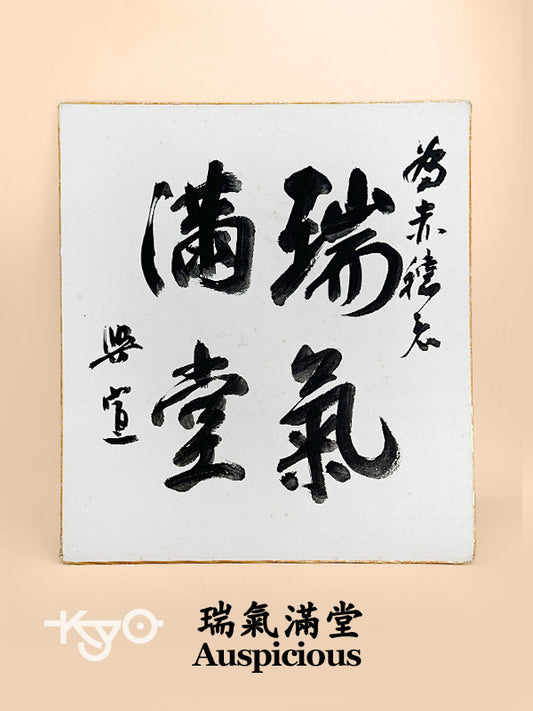 為赤穂君
瑞氣
満堂
宣
Kyo
瑞氣滿堂
Auspicious